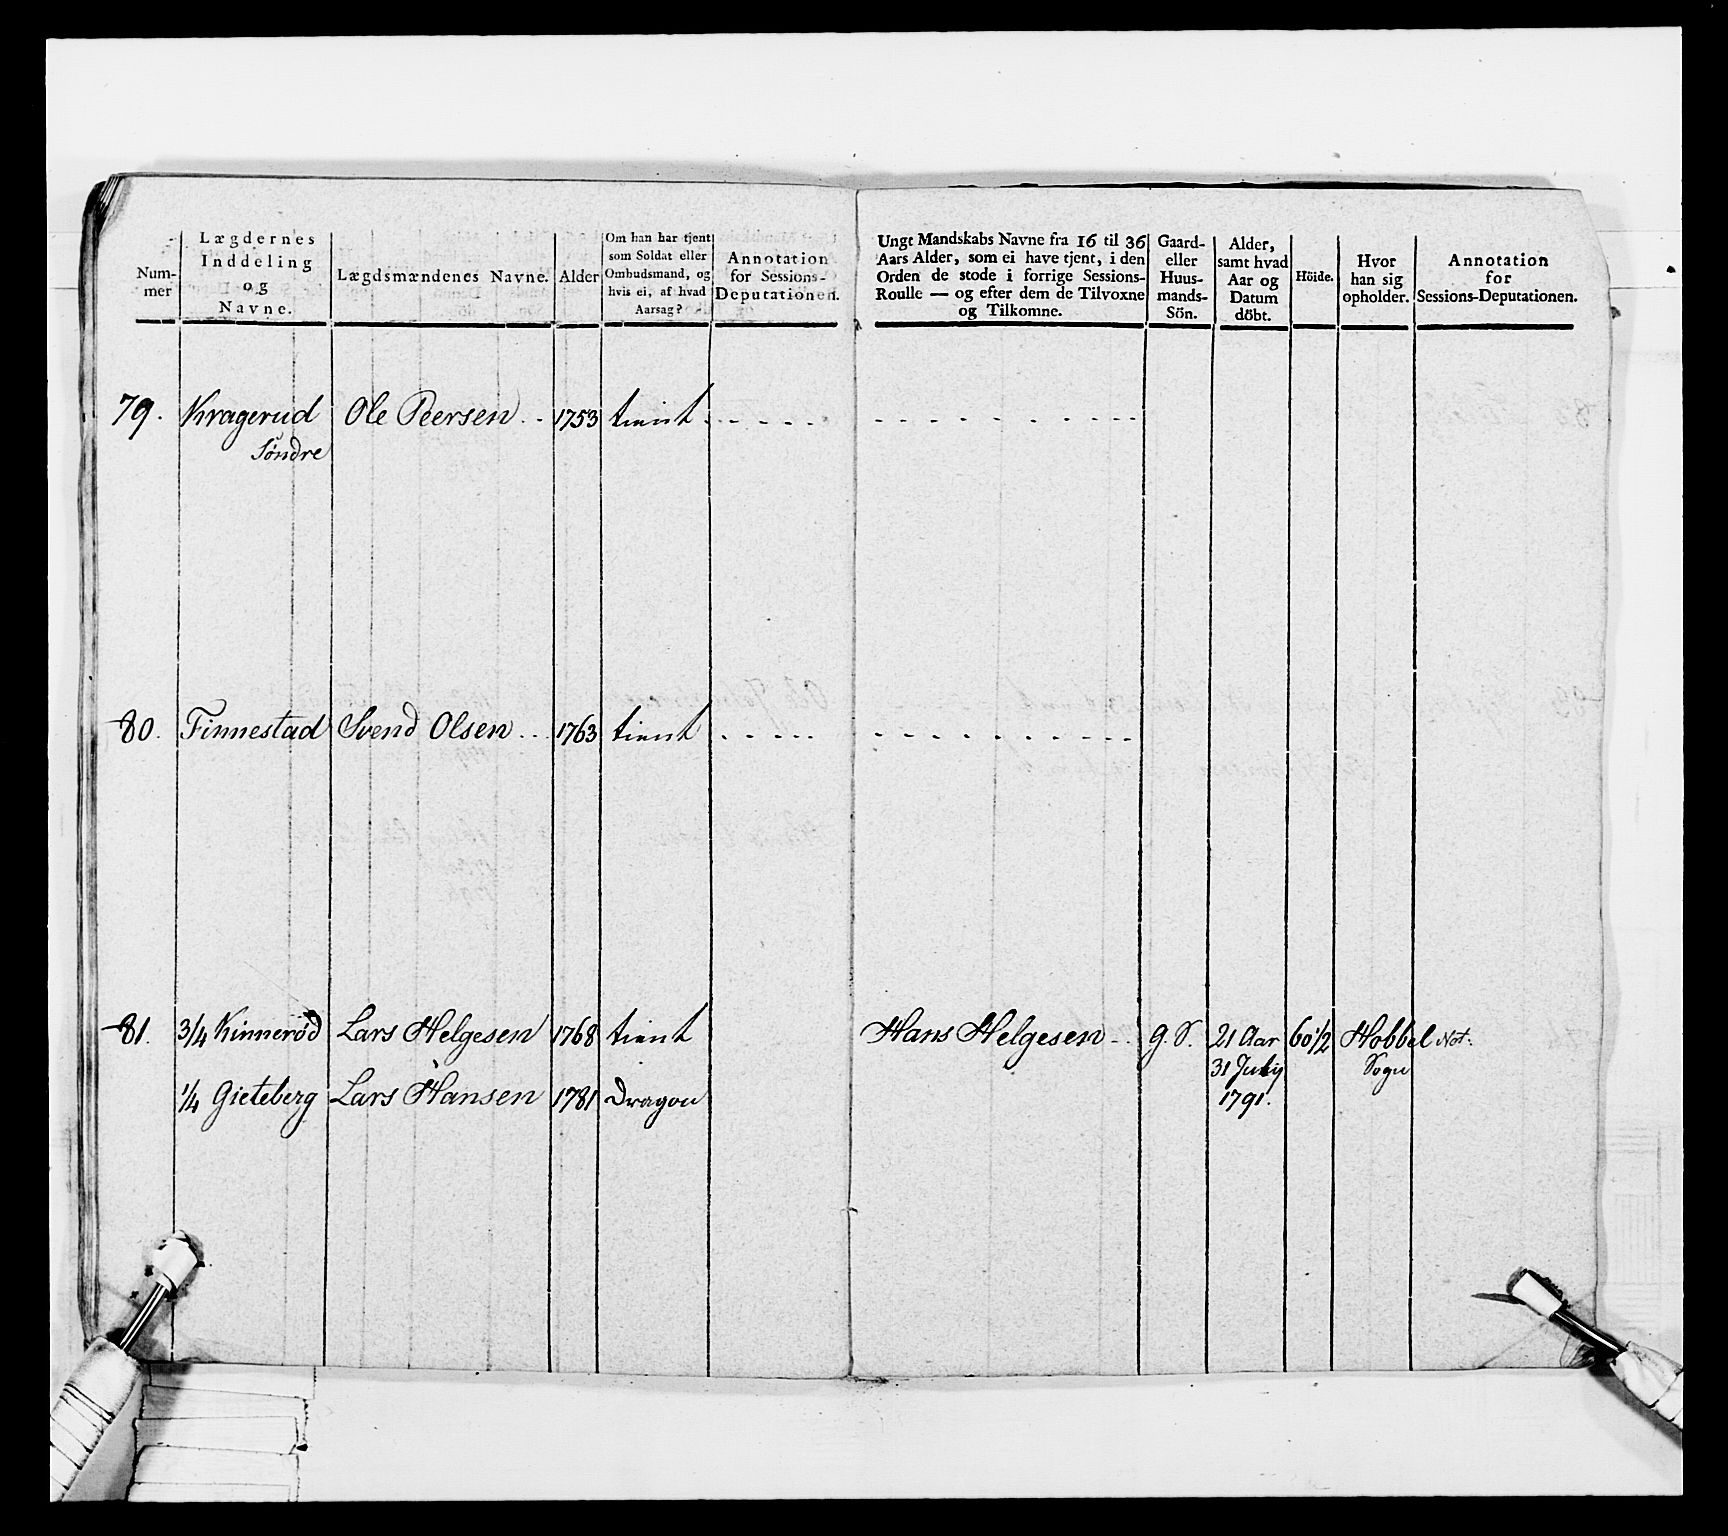 Num-
mer
Lægdernes
Inddeling
og
Navne.
Lægdsmændenes Navne.
Alder
Om han har tjent
som Soldat eller
Ombudsmand, og
hvis ei, af hvad
Aarsag?
Annotation
for Sessions-
Deputationen.
Ungt Mandskabs Navne fra 16 til 36
Aars Alder, som ei have tjent, i den
Orden de stode i forrige Sessions-
Roulle — og efter dem de Tilvoxne
og Tilkomne.
Gaard-
eller
Huus-
mands-
Sön.
Alder,
samt hvad
Aar og
Datum
döbt.
Höide.
Hvor
han sig
opholder.
Annotation
for
Sessions-Deputationen.
79. Kragerud Ole Peersen . . 1753 tient . - - - - - - - - - - - - - -
Søndre
80. Finnestad Svend Olsen . . . 1763 tient . - - - - - - - - - - - - - -
81. 3/4 Kinnerød Lars Helgesen 1768 tient Hans Helgesen - . g. S. 21 Aar 60 1/2 Hobbel Not:
31 July Sogn
1/4 Gieteberg Lars Hansen 1781 Dragon 1791.